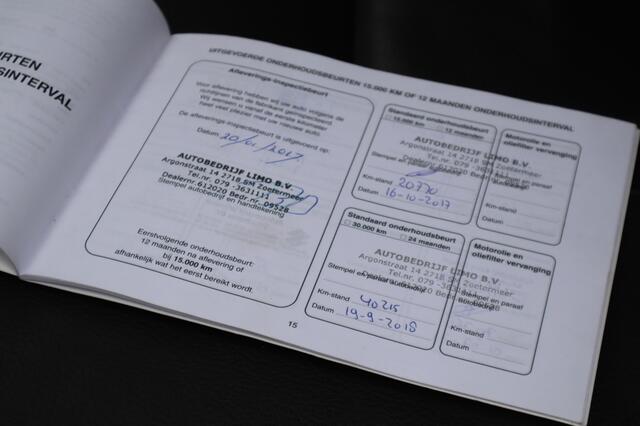 URTEN
SINTERVAL
UITGEVOERDE ONDERHOUDSBEURTEN 15.000 KM OF 12 MAANDEN ONDERHOUDSINTERVAL
Afleverings-inspectiebeurt
Voor aflevering hebben wij uw auto volgens de
richtlijnen van de fabrikant geïnspecteerd.
Wij wensen u vanaf de eerste kilometer
heel veel plezier met uw nieuwe auto.
De afleverings-inspectiebeurt is uitgevoerd op:
Datum 20/01/2017
AUTOBEDRIJF LIMO B.V.
Argonstraat 14 2718 SM Zoetermeer
Tel.nr. 079 -3631111
Dealernr.612020 Bedr.nr. 09528
Stempel autobedrijf en handtekening
Eerstvolgende onderhoudsbeurt:
12 maanden na aflevering of
bij 15.000 km
afhankelijk wat het eerst bereikt wordt.
15
Standaard onderhoudsbeurt
15.000 km 12 maanden
AUTOBEDRIJF LIMO B.V.
Argonstraat 14 2718 SM Zoetermeer
Stempel en paraaf
Km-stand 20770
Datum 16-10-2017
Motorolie en
oliefilter vervanging
Km-stand
Datum
Standaard onderhoudsbeurt
30.000 km 24 maanden
AUTOBEDRIJF LIMO B.V.
Argonstraat 14 2718 SM Zoetermeer
Stempel en paraaf autobedrijf
Km-stand 40215
Datum 19-9-2018
Motorolie en
oliefilter vervanging
Stempel en paraaf
Km-stand
Datum